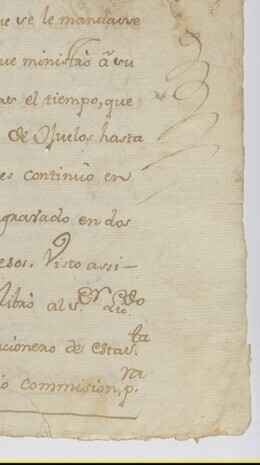 ue se le mandasse
ue ministró à su
as el tiempo, que
de Ojuelos hasta
es continuó en
gravado en dos
esos. Visto assi-
libró al s.or Lic.do
acionero de esta s.ta
io commision, p.ra